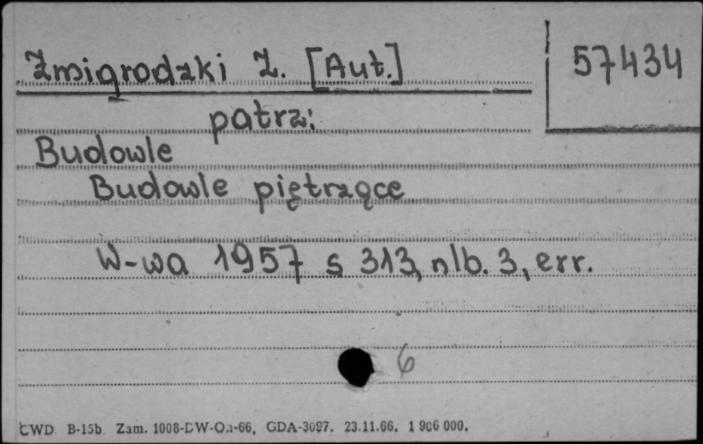 Żmigrodzki Z. [Aut.]
57434
patrz:
Budowle
Budowle piętrzące
W-wa 1957 s 313, nlb. 3, err.
6
CWD B-15b Zam. 1008-DW-Oa-66. GDA-3097. 23.11.66. 1 906 000.